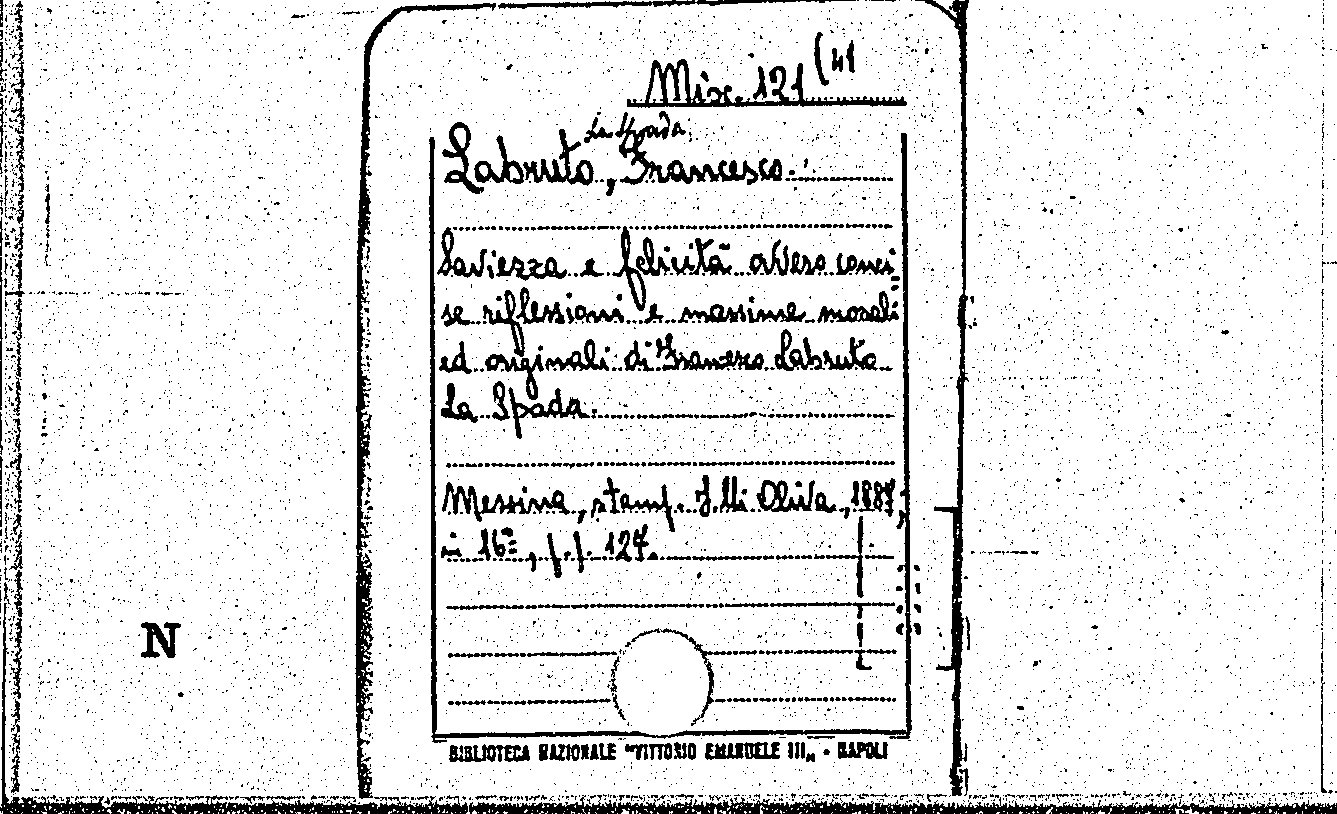 Misc. 121 (41
La Spada
Labruto, Francesco.
Saviezza e felicità ovvero conci-
se riflessioni e massime morali
ed originali di Francesco Labruto
La Spada.
Messina, stamp. F.lli Oliva, 1887,
in 16°, p.p. 127.
N
BIBLIOTECA NAZIONALE "VITTORIO EMANUELE III„ - NAPOLI